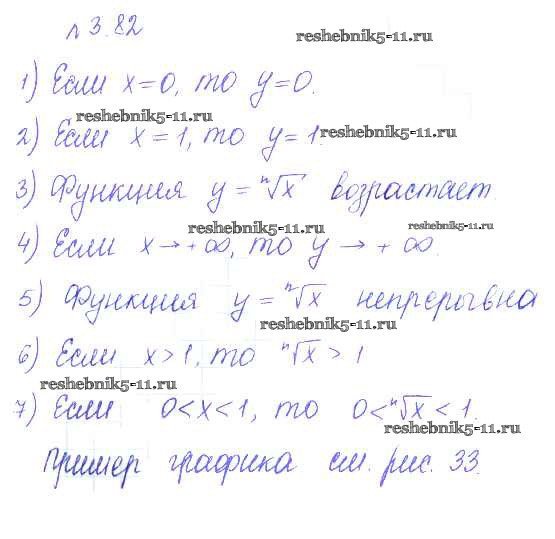 № 3.82
reshebnik5-11.ru
1) Если x=0, то y=0.
reshebnik5-11.ru
2) Если x=1, то y=1.
reshebnik5-11.ru
3) Функция y=ⁿ√x возрастает.
reshebnik5-11.ru
reshebnik5-11.ru
4) Если x→+∞, то y→+∞.
5) Функция y=ⁿ√x непрерывна
reshebnik5-11.ru
6) Если x>1, то ⁿ√x>1
reshebnik5-11.ru
7) Если 0<x<1, то 0<ⁿ√x<1.
reshebnik5-11.ru
Пример графика см. рис. 33.